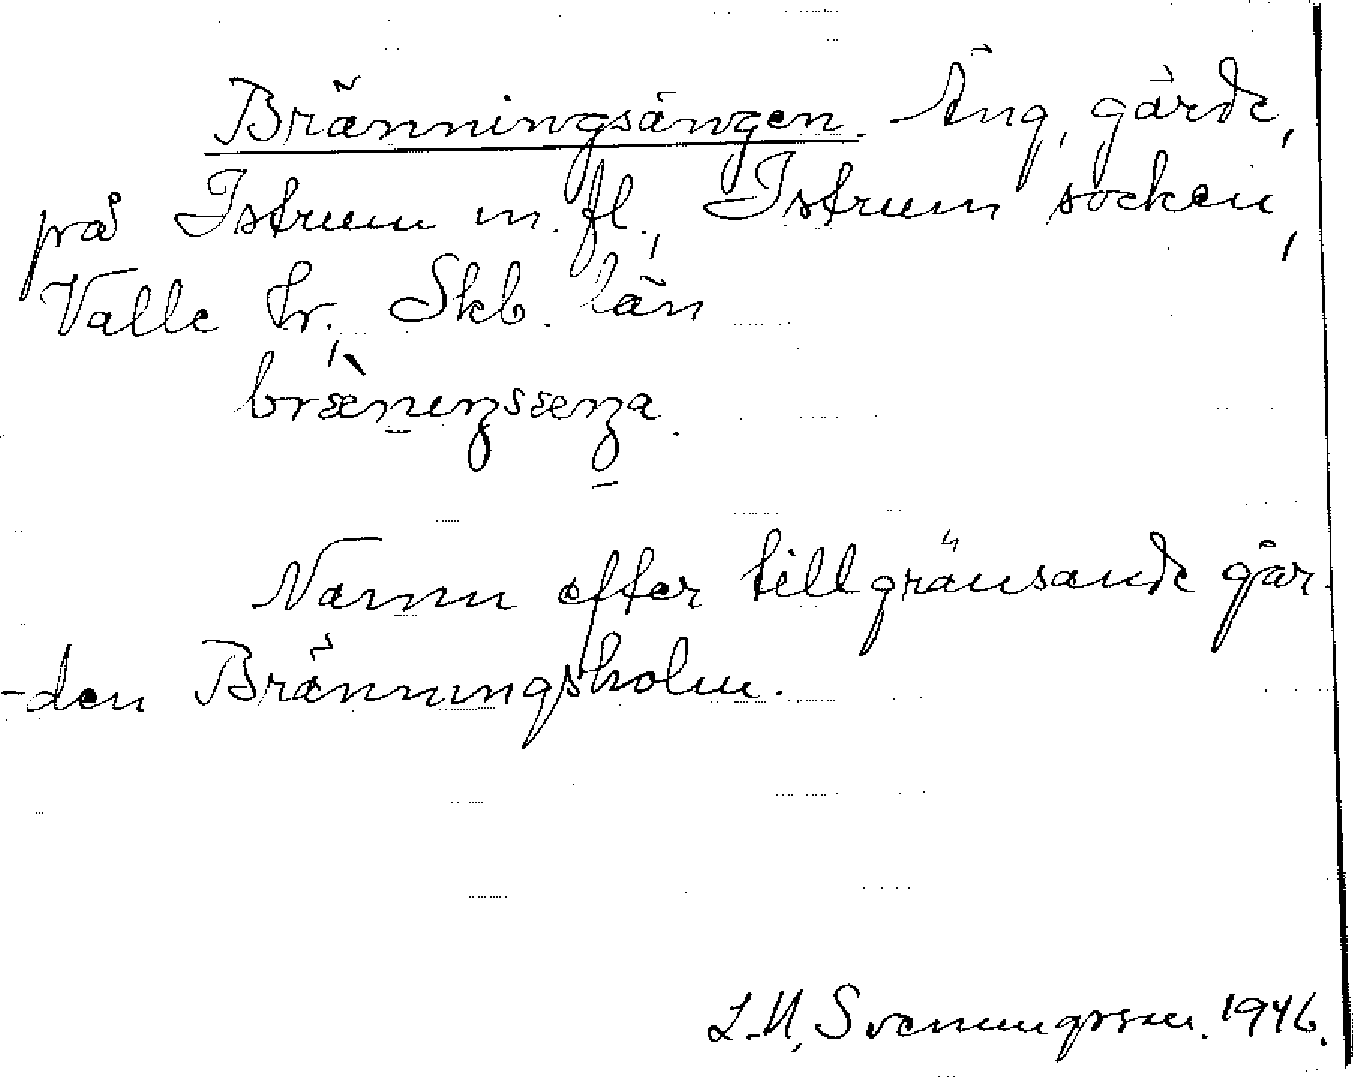 Bränningsängen. Äng, gärde,
på Istrum m. fl., Istrum socken,
Valle hr., Skb. län
bræ̀nıŋsæŋa.
Namn efter tillgränsande går-
-den Bränningsholm.
L.M. Svenungsson. 1946.